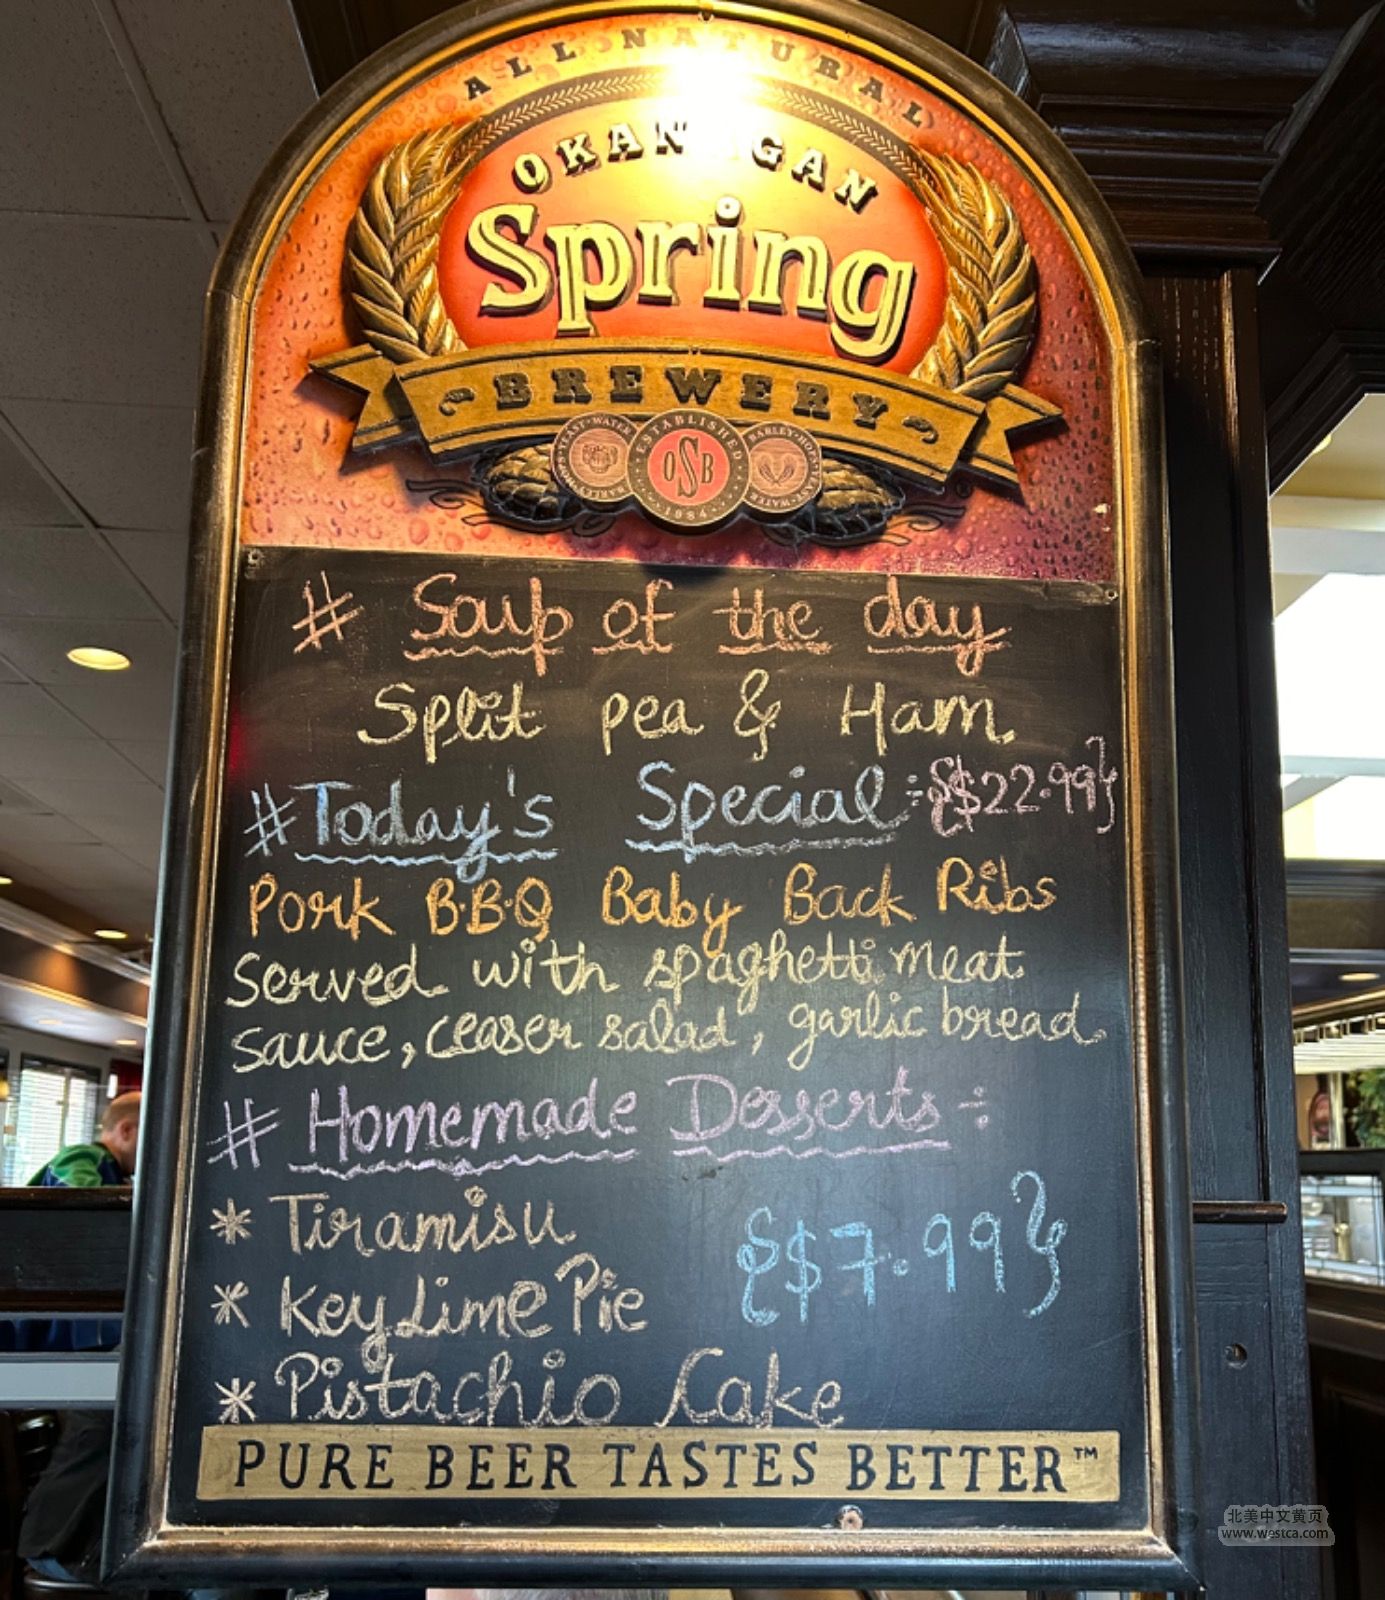 ALL NATURAL
OKANAGAN
Spring
BREWERY
ESTABLISHED
OSB
1984
# Soup of the day
Split pea & Ham.
# Today's Special :{$22.99}
Pork B.B.Q Baby Back Ribs
Served with spaghetti meat
sauce, ceaser salad, garlic bread.
# Homemade Desserts :
* Tiramisu
{$7.99}
* Key Lime Pie
* Pistachio Cake
PURE BEER TASTES BETTER™
北美中文黄页
www.westca.com